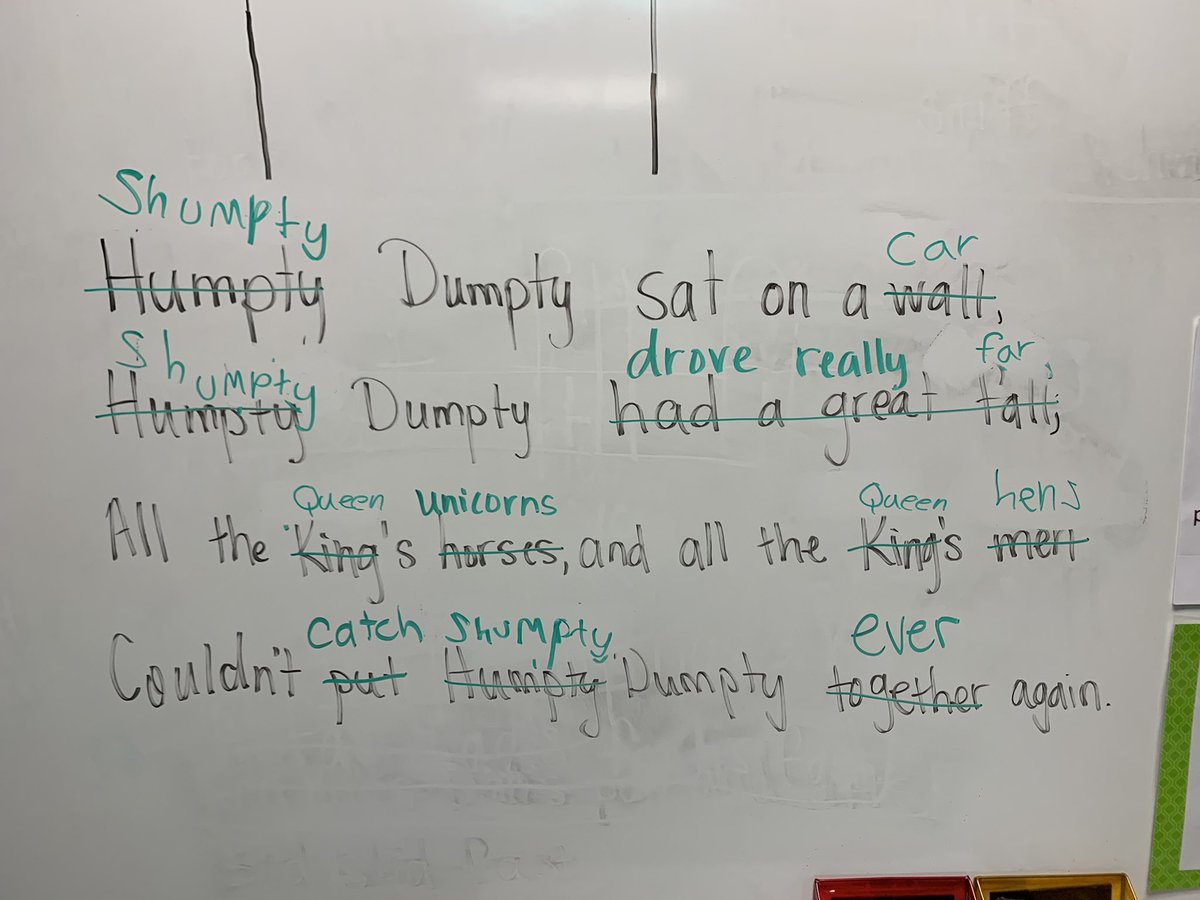 Shumpty car
Humpty Dumpty sat on a wall,
Shumpty drove really far,
Humpty Dumpty had a great fall;
Queen unicorns Queen hens
All the King's horses, and all the King's men
catch Shumpty ever
Couldn't put Humpty Dumpty together again.